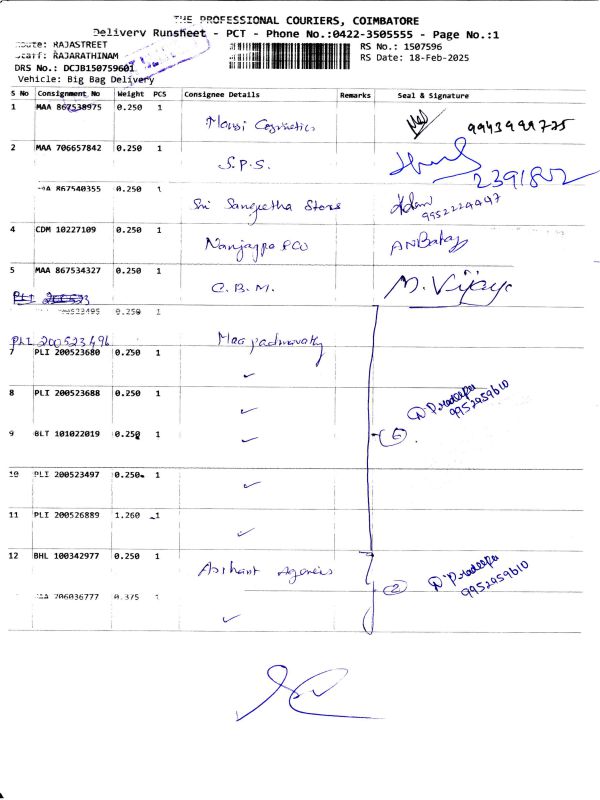 THE PROFESSIONAL COURIERS, COIMBATORE
Delivery Runsheet - PCT - Phone No.:0422-3505555 - Page No.:1
Route: RAJASTREET
Staff: RAJARATHINAM
RS No.: 1507596
DRS No.: DCJB150759601
RS Date: 18-Feb-2025
Vehicle: Big Bag Delivery
S No Consignment No Weight PCS Consignee Details Remarks Seal & Signature
1 MAA 867538975 0.250 1
9943999775
2 MAA 706657842 0.250 1
S.P.S.
2391802
867540355 0.250 1
Sri Sangeetha Stores
9952224497
4 CDM 10227109 0.250 1
Nanjappa &CO
5 MAA 867534327 0.250 1
C.B.M. M. Vijaya
PLI
0.250 1
PLI 200523496 Maa padmavathy
7 PLI 200523680 0.250 1
✓
8 PLI 200523688 0.250 1
D Pradeepa
9952959610
✓
9 BLT 101022019 0.250 1
✓ 6
10 PLI 200523497 0.250 1
✓
11 PLI 200526889 1.260 1
✓
12 BHL 100342977 0.250 1
Arihant Agencies
D Pradeepa
9952959610
2
706036777 0.375 1
✓